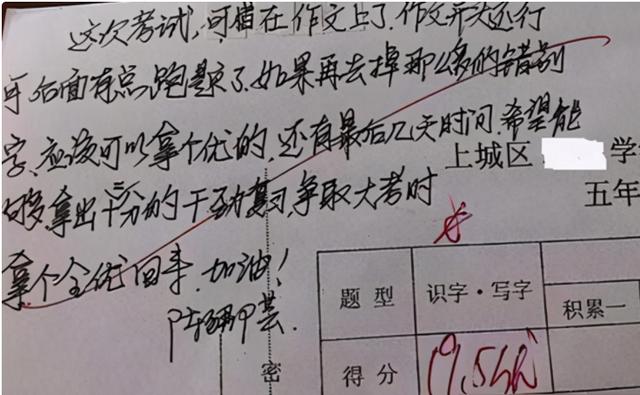 这次考试,可惜在作文上了.作文开头还行
可后面有点跑题了.如果再去掉那么多的错别
字,应该可以拿个优的.还有最后几天时间.希望能
够拿出十二分的干劲复习.争取大考时
拿个全优回来.加油!
上城区 学
五年
题型 识字·写字
积累一
得分 19.5
密